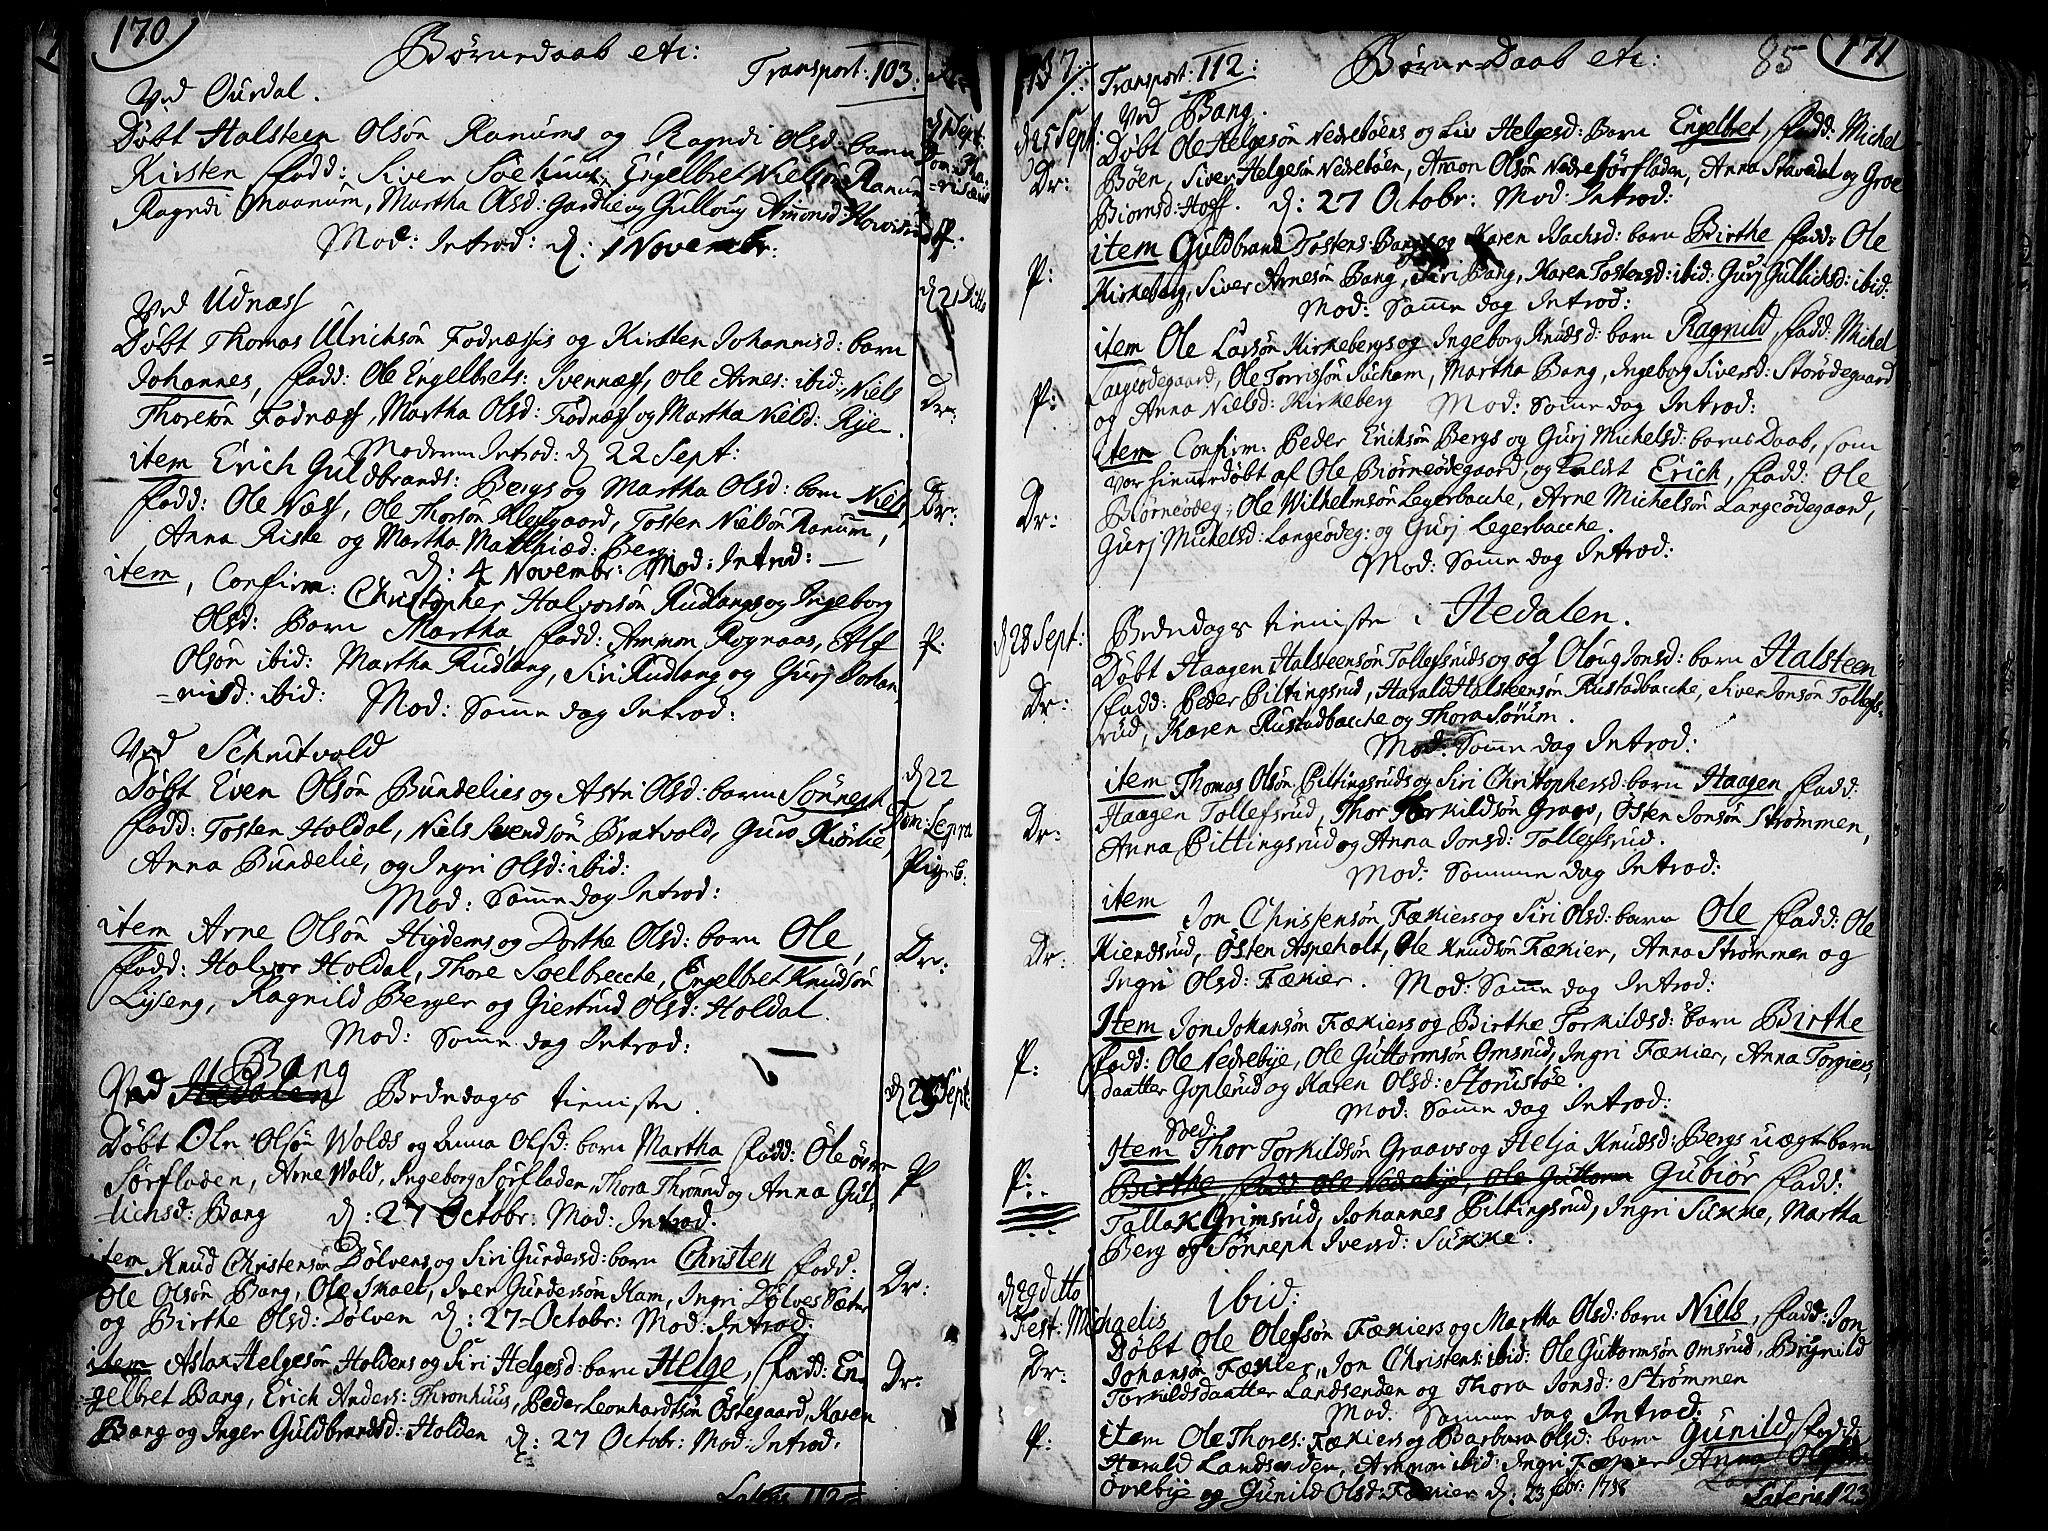 170
Børnedaab etc:
Transport: 103.
Ved Ourdal.
Døbt Halsteen Olsøn Ranums og Ragndi Olsd: barn
d. 1 Sept:
Kirsten fadd: Siver Søetuun, Engelbret Nielsøn Ranum
Ragndi Maanum, Martha Olsd: Gardlie og Gulloug Amonsd:
P:
Mod: Introd: d: 1 Novembr:
Ved Udnæss
d. 2 Ditto
Døbt Thomas Ulrichsøn Fodnæssis og Kirsten Johannisd: barn
Johannes, fadd: Ole Engelbrets: Svennæss, Ole Arnes: ibid: Niels
Dr:
Thoresøn Fodnæss, Martha Olsd: Fodnæss og Martha Nielsd: Rye.
Moderen Introd: d 22 Sept:
item Erich Guldbrands: Bergs og Martha Olsd: barn Niels
Dr:
fadd: Ole Næss, Ole Thorsøn Klefgaard, Tosten Nielsøn Ranum,
Anna Riste og Martha Matthiæd: Berg.
d: 4 Novembr: Mod: Introd:
item, Confirm: Christopher Halvorsøn Rudlangs og Ingeborg
Olsd: Barn Martha fadd: Ammon Rognaas, Alf
P:
Olsøn ibid: Martha Rudlang, Siri Rudlang og Gurj Johan
=nisd: ibid: Mod: Samme dag Introd:
Ved Schrutvold
d. 22
Døbt Even Olsøn Bundelies og Astri Olsd: barn Sønneph
fadd: Tosten Holdal, Niels Svendsøn Bratvold, Guro Kiørlie,
Anna Bundelie, og Ingri Olsd: ibid:
Pige b:
Mod: Samme dag Introd:
item Arne Olsøn Higdems og Dorthe Olsd: barn Ole,
Dr:
fadd: Halvor Holdal, Thore Soelbrecche, Engelbret Knudsøn
Liseng, Ragnild Berger og Giertrud Olsd: Holdal.
Mod: Samme dag Introd:
Bang
Ved Hedalen Bededags tieniste.
Døbt Ole Olsøn Wolds og Anna Olsd: barn Martha fadd: Ole øvre
P
Sørfladen, Arne Wold, Ingeborg Sørfladen, Thora Thrønd og Anna Gul-
=lichsd: Bang d: 27 Octobr: Mod: Introd.
item Knud Christensøn Dølvens og Siri Gundersd: barn Christen fadd:
Dr:
Ole Olsøn Bang, Ole Skael, Iver Gundersøn Kam, Ingri Dølves Sæter
og Birthe Olsd: Dølven d: 27 Octobr: Mod: Introd:
item Aslak Helgesøn Holdens og Siri Helgesd: barn Helge, fadd: En-
Dr:
=gelbret Bang, Erich Anders: Thronhuus, Peder Leonhardtsøn Østegaard, Karen
Bang og Inger Guldbrandsd: Holden d: 27 Octobr: Mod: Introd:
Lateris 112
1737.
Transport: 112:
Børne-Daab etc:
85
171
Ved Bang.
d. 25 Sept:
Døbt Ole Helgesøn Nedrebøens og Liv Helgesd: Barn Engelbret, fadd: Michel
Dr:
Bøen, Siver Helgesøn Nedrebøen, Amon Olsøn Nedre Sørfladen, Anna Stavedal og Groe
Biornsd: Hoff. d: 27 Octobr: Mod: Introd:
item Guldbrand Tostens: Bangs og Karen Isachsd: barn Birthe fadd: Ole
P:
Kirkeberg, Siver Arnesøn Bang, Siri Bang, Karen Tostensd: ibid: Gurj Gullichsd: ibid:
Mod: Samme dag Introd:
item Ole Larsøn Kirkebergs og Ingeborg Knudsd: barn Ragnild fadd: Michel
P:
Langeødegaard, Ole Torrissøn Juham, Martha Bang, Ingeborg Siversd: Storødegaard
og Anna Nielsd: Kirkeberg Mod: Samme dag Introd:
item Confirm: Peder Erichsøn Bergs og Gurj Michelsd: barns Daab, som
var hiemmedøbt af Ole Biørneødegaard, og kaldt Erich, fadd: Ole
Dr:
Biørneødeg: Ole Wilhelmsøn Legerbacche, Arne Michelsøn Langeødegaard,
Gurj Michelsd: Langeødeg: og Gurj Legerbacche.
Mod: Samme dag Introd:
d. 28 Sept:
Bededags tieniste i Hedalen.
Døbt Haagen Halsteensøn Tollefsruds og Oloug Jonsd: barn Halsteen
Dr:
fadd: Peder Piltingsrud, Harald Halsteensøn Rustadbacche, Siver Jonsøn Tollefs-
rud, Karen Rustadbacche og Thora Sørum.
Mod: Samme dag Introd:
item Thomas Olsøn Piltingsruds og Siri Christophersd: barn Haagen fadd:
Dr:
Haagen Tollefsrud, Thor Torkildsøn Graav, Østen Jonsøn Strømmen,
Anna Piltingsrud og Anna Jonsd: Tollefsrud.
Mod: Samme dag Introd:
item
Jon Christensøn Fækiers og Siri Olsd: barn Ole fadd: Ole
Dr:
Kiendsrud, Østen Aspeholt, Ole Knudsøn Fækier, Anna Strømmen og
Ingri Olsd: Fækier. Mod: Samme dag Introd:
Item Jon Johansøn Fækiers og Birthe Torkildsd: barn Birthe
P:
fadd: Ole Nedrebye, Ole Guttormsøn Omsrud, Ingri Fækier, Anna Torgiers
daatter Goplerud og Karen Olsd: Storustøe.
Mod: Samme dag Introd:
Item Thor Torkildsøn Graavs og Helja Knudsd: Bergs uægte barn
P:
Birthe fadd Ole Nedrebye, Ole Guttorm Gubiør fadd:
Tallak Grimsrud, Johannes Piltingsrud, Ingri Sukke, Martha
Berg og Sønneph Iversd: Sukke.
d. 29 ditto
ibid:
Fest: Michaelis
Døbt Ole Olefsøn Fækiers og Martha Olsd: barn Niels, fadd: Jon
Dr:
Johansøn Fækier, Jon Christens: ibid: Ole Guttormsøn Omsrud, Brynild
Torkildsdaatter Landsenden og Thora Jonsd: Strømmen
Mod. Samme dag Introd.
P:
item Ole Thores: Fækiers og Barbara Olsd: barn Gunild, fadd:
Harald Landsenden, Ammon ibid: Ingri Fækier Anna
Øvrebye og Gunild Olsd: Fækier d: 23 febr: 1738
Lateris 123